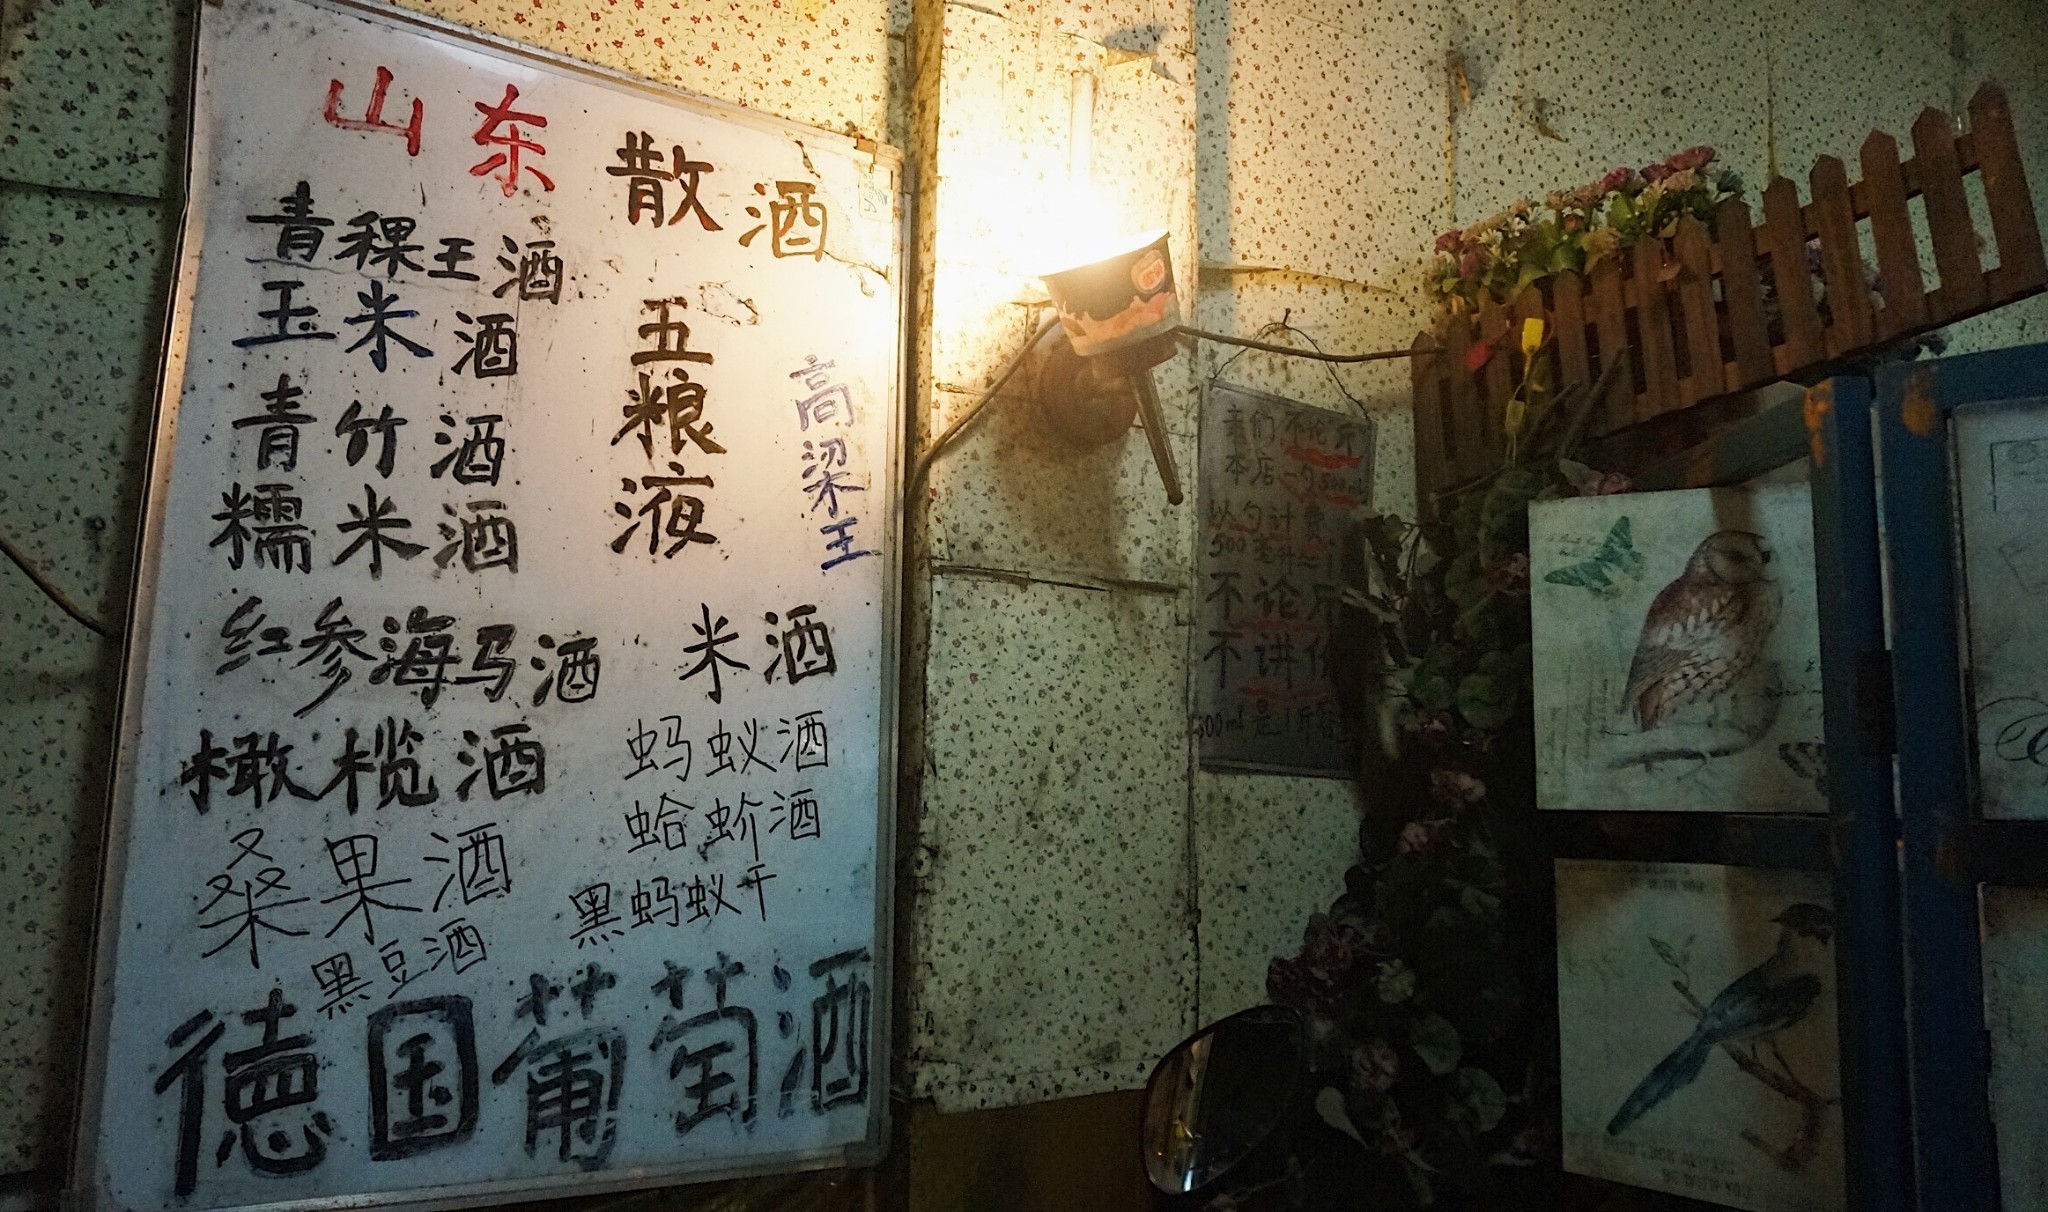 山东散酒
青稞王酒
玉米酒
青竹酒
糯米酒
红参海马酒
橄榄酒
桑果酒
黑豆酒
五粮液
高梁王
米酒
蚂蚁酒
蛤蚧酒
黑蚂蚁干
德国葡萄酒
我们不论斤
本店一勺500mL
以勺计费
500毫
不论斤
不讲价
500ml是1斤